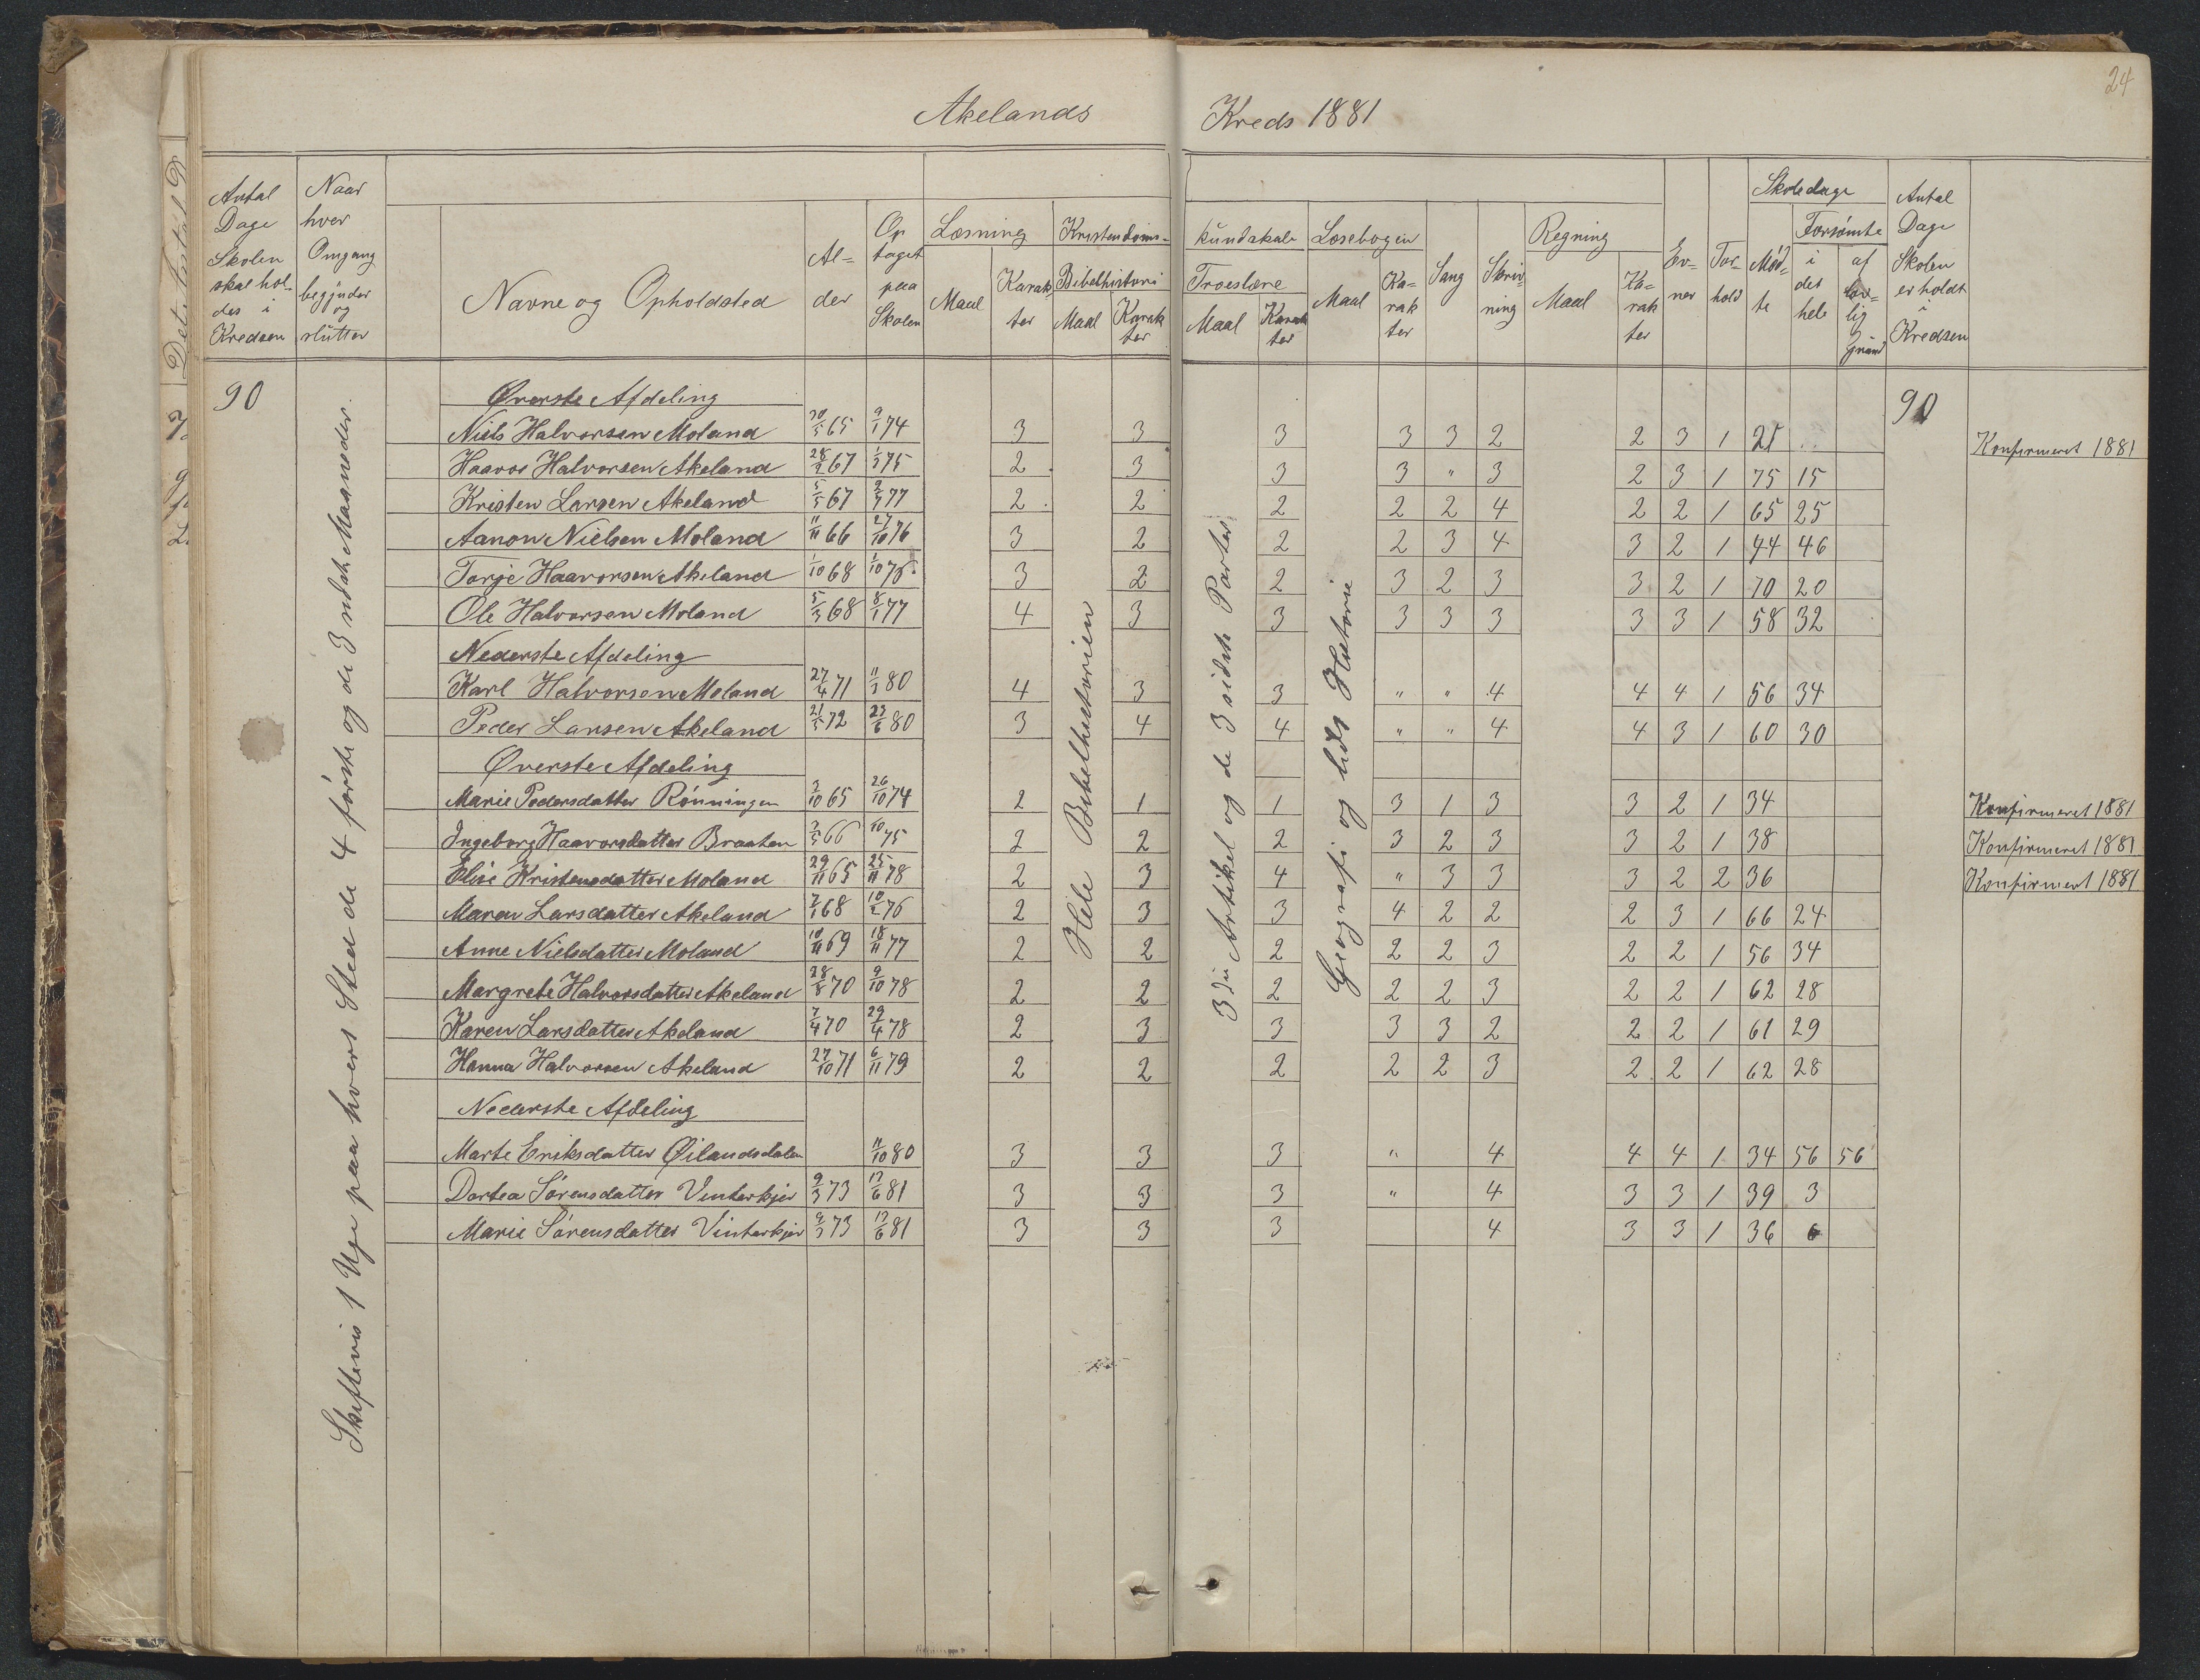 24
Akelands Kreds 1881
Antal Dage Skolen skal holdes i Kredsen
Naar hver Omgang begynder og slutter
Navne og Opholdsted
Al-der
Optaget paa Skolen
Læsning
Maal
Karakter
Kristendoms-kundskab
Bibelhistorie
Maal
Karakter
Troeslære
Maal
Karakter
Læsebogen
Maal
Karakter
Sang
Skrivning
Regning
Maal
Karakter
Evner
Forhold
Skoledage
Mødte
Forsømte
i det hele
af lovlig Grund
Antal Dage Skolen er holdt i Kredsen
90
Skiftevis 1 Uge paa hvert Sted de 4 første og de 3 sidste Maaneder.
Hele Bibelhistorien
3die Artikel og de 3 sidste Parter
Geografi og lidt Historie
90
Øverste Afdeling
Niels Halvorsen Moland 65 9/1 74 3 3 3 3 3 2 2 3 1 21 Konfirmeret 1881
Haavor Halvorsen Akeland 67 75 2 3 3 3 " 3 2 3 1 75 15
Kristen Larsen Akeland 5/5 67 77 2 2 2 2 2 4 2 2 1 65 25
Aanon Nielsen Moland 11/11 66 27/10 76 3 2 2 2 3 4 3 2 1 44 46
Torje Haavorsen Akeland 1/10 68 3 2 2 3 2 3 3 2 1 70 20
Ole Halvorsen Moland 5/3 68 8/1 77 4 3 3 3 3 3 3 3 1 58 32
Nederste Afdeling
Karl Halvorsen Moland 27/4 71 80 4 3 3 " " 4 4 4 1 56 34
Peder Larsen Akeland 21/5 72 23/6 80 3 4 4 " " 4 4 3 1 60 30
Øverste Afdeling
Marie Pedersdatter Rönningen 65 26/10 74 2 1 1 3 1 3 3 2 1 34 Konfirmeret 1881
Ingeborg Haavorsdatter Braaten 66 75 2 2 2 3 2 3 3 2 1 38 Konfirmeret 1881
Elise Kristensdatter Moland 29/11 65 25/11 78 2 3 4 " 3 3 3 2 2 36 Konfirmert 1881
Maren Larsdatter Akeland 68 76 2 3 3 4 2 2 2 3 1 66 24
Anne Nielsdatter Moland 10/11 69 18/11 77 2 2 2 2 2 3 2 2 1 56 34
Margrete Halvorsdatter Akeland 28/8 70 9/10 78 2 2 2 2 2 3 2 2 1 62 28
Karen Larsdatter Akeland 7/4 70 29/4 78 2 3 3 3 3 2 2 2 1 61 29
Hanna Halvorsen Akeland 27/10 71 6/11 79 2 2 2 2 2 3 2 2 1 62 28
Nederste Afdeling
Marte Eriksdatter Øilandsdalen 11/10 80 3 3 3 " 4 4 4 1 34 56 56
Dortea Sørensdatter Vinterkjær 9/3 73 81 3 3 3 " 4 3 3 1 39 3
Marie Sørensdatter Vinterkjær 9/3 73 81 3 3 3 4 3 3 1 36 6